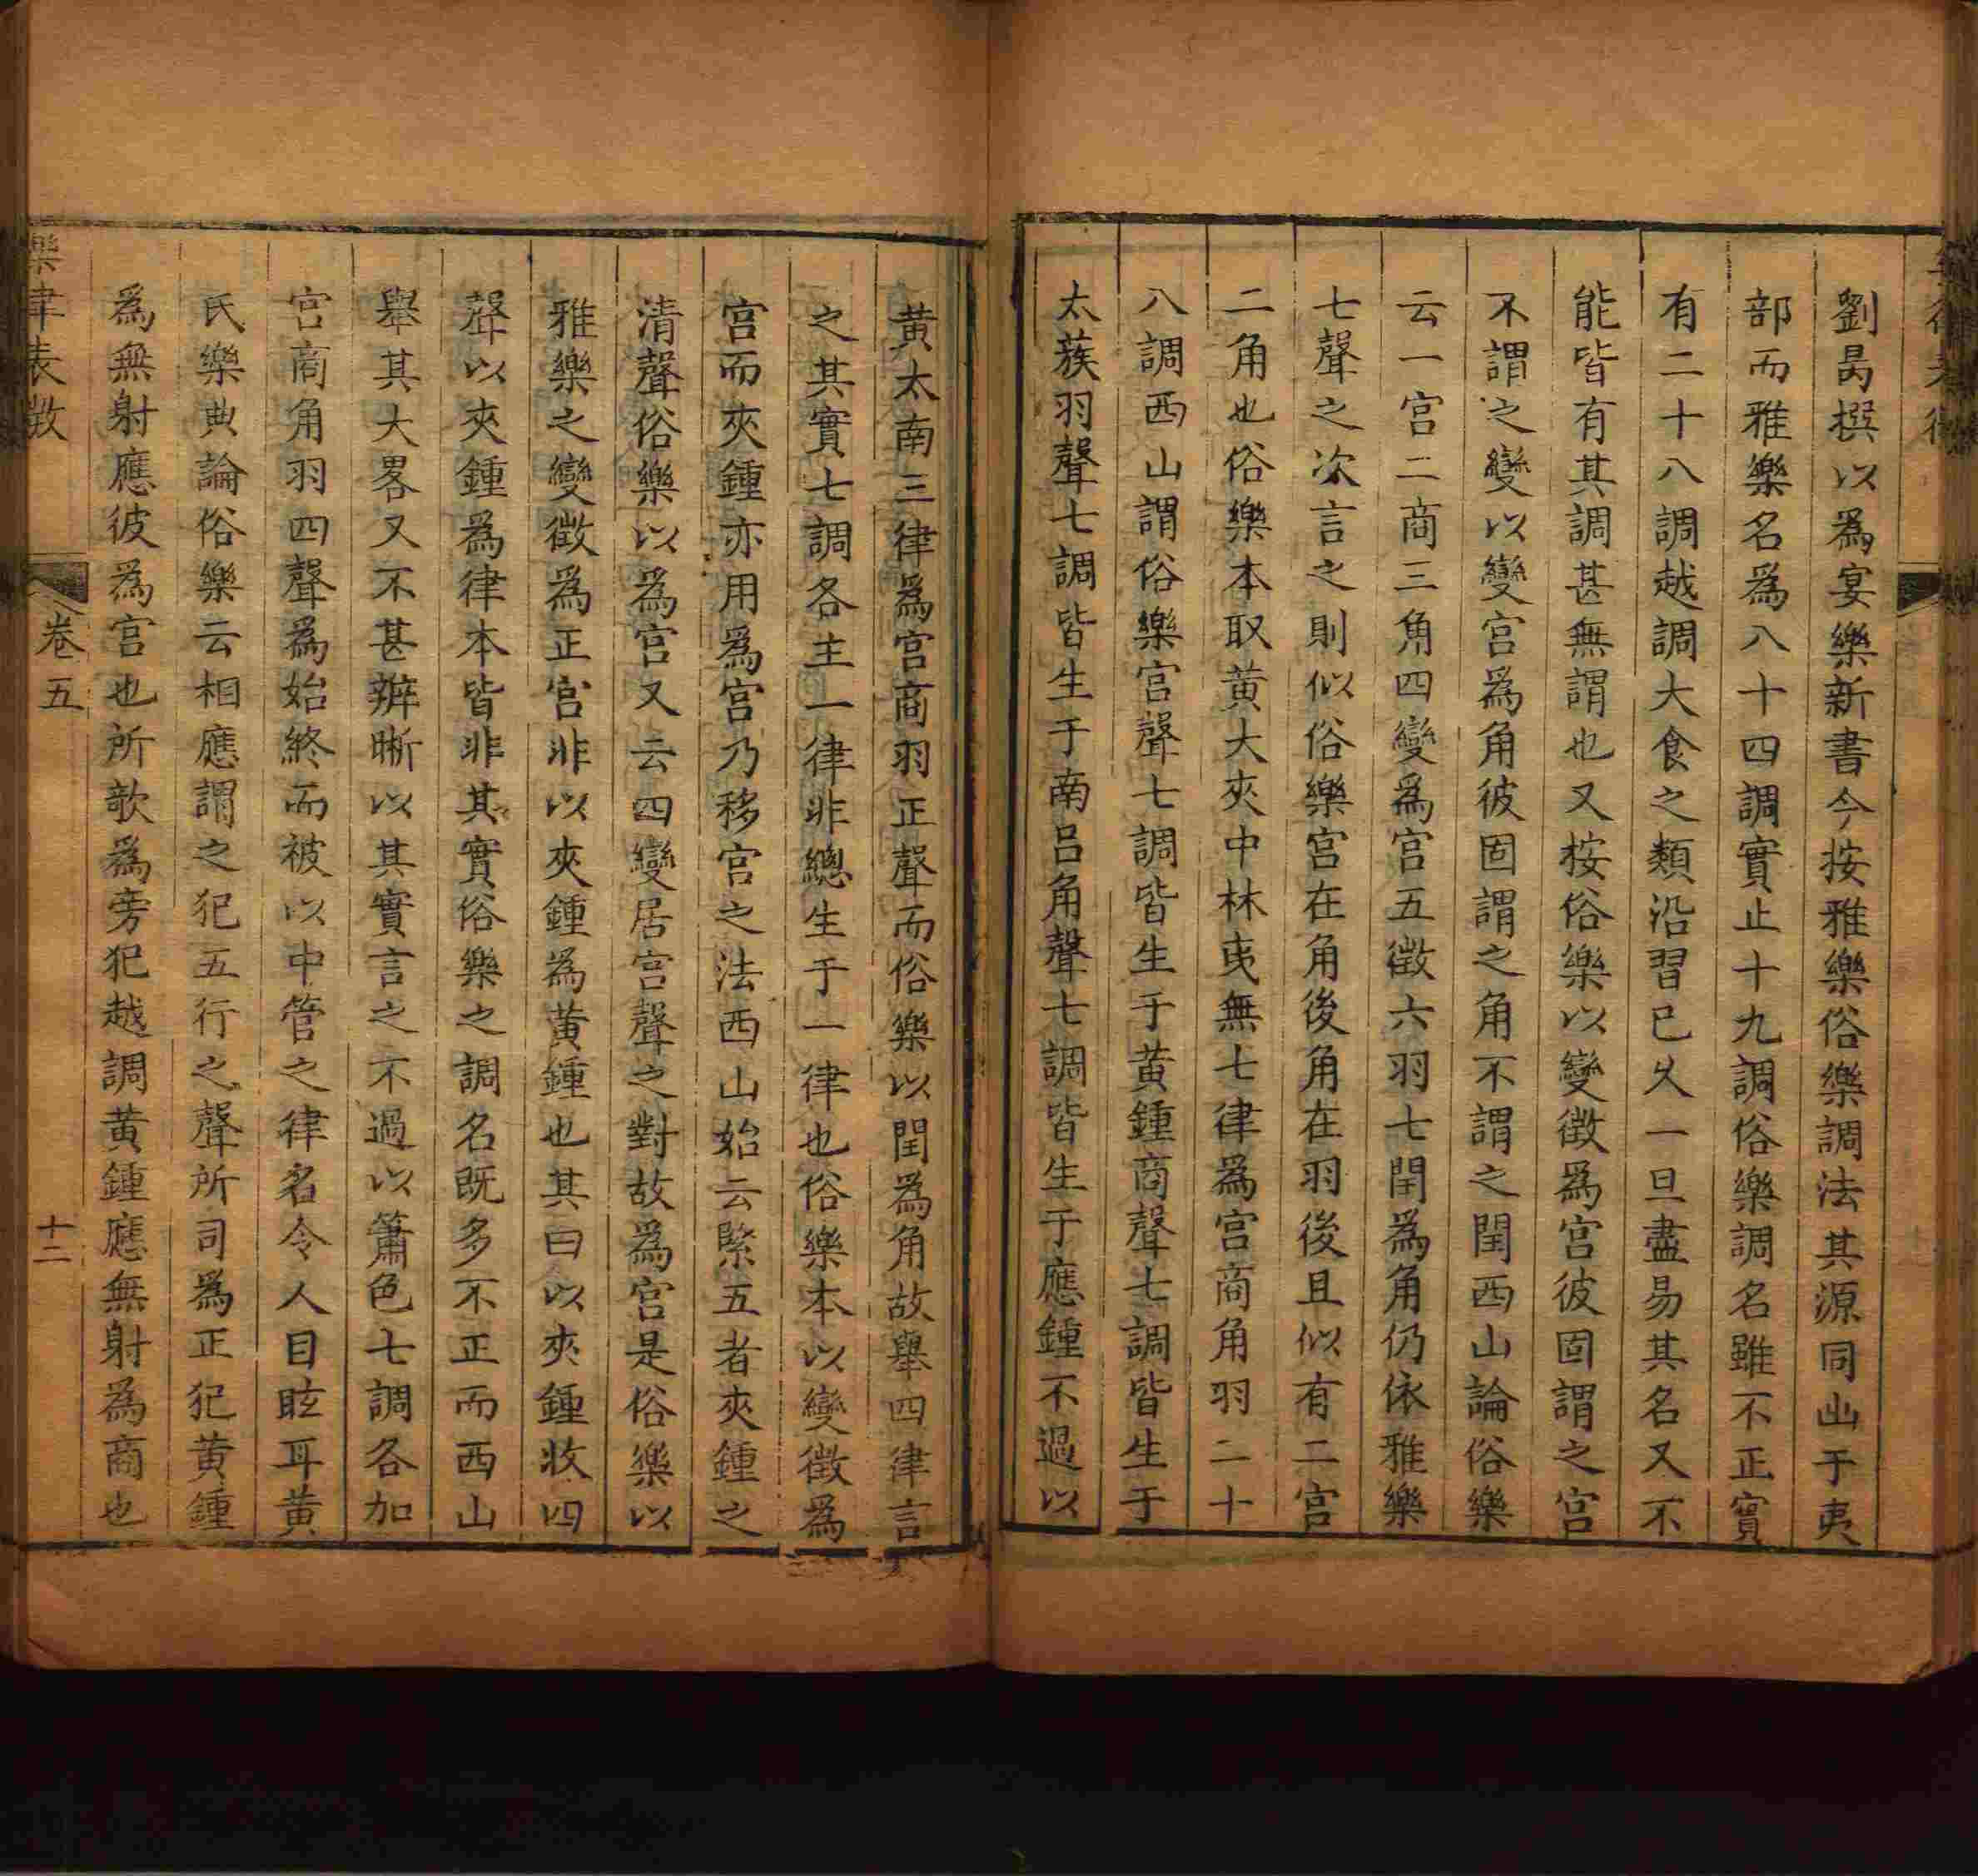 劉昺撰以為宴樂新書今按雅樂俗樂調法其源同出于夷
部而雅樂名為八十四調實止十九調俗樂調名雖不正實
有二十八調越調大食之類沿習已久一旦盡易其名又不
能皆有其調甚無謂也又桉俗樂以變徵為宫彼固謂之宫
不謂之變以變宫為角彼固謂之角不謂之閏西山論俗樂
云一宫二商三角四變為宫五徵六羽七閏為角仍依雅樂
七聲之次言之則似俗樂宫在角後角在羽後且似有二宫
二角也俗樂本取黄大夾中林夷無七律為宫商角羽二十
八調西山謂俗樂宫聲七調皆生于黄鍾商聲七調皆生于
太蔟羽聲七調皆生于南呂角聲七調皆生于應鍾不過以
黄太南三律為宫商羽正聲而俗樂以閏為角故舉四律言
之其實七調各主一律非總生于一律也俗樂本以變徵為
宫而夾鍾亦用為宫乃移宫之法西山始云緊五者夾鍾之
清聲俗樂以為宫又云四變居宫聲之對故為宫是俗樂以
雅樂之變徵為正宫非以夾鍾為黄鍾也其曰以夾鍾收四
聲以夾鍾為律本皆非其實俗樂之調名既多不正而西山
舉其大畧又不甚辨晰以其實言之不過以簫色七調各加
宫商角羽四聲為始終而被以中管之律名令人目眩耳黄
氏樂典論俗樂云相應謂之犯五行之聲所司為正犯黄鍾
為無射應彼為宫也所歌為旁犯越調黄鍾應無射為商也
樂律表微
卷五
十二